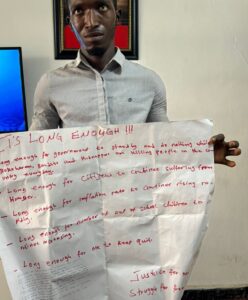 IS LONG ENOUGH!!!
enough for government to standby and do nothing while
Bokoharam, Bandits and killing people in this
- Long enough for Citizens to continue suffering from
Hunger.
- Long enough for inflation rate to continue rising
- Long enough for number of out of school children to
- Long enough for me to keep quit.
Justice for
Struggle for